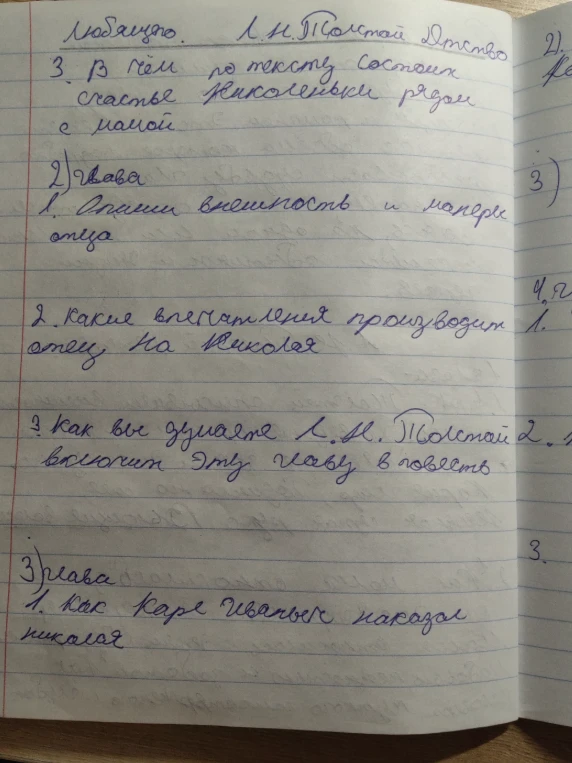 Любящего. Л.Н.Толстой Детство
3. В чём по тексту состоит
счастье Николеньки рядом
с мамой
2) глава
1. Опиши внешность и манеры
отца
2. Какие впечатления производит
отец на Николая
3. Как вы думаете Л.Н.Толстой
включил эту главу в повесть
3) глава
1. Как Карл Иваныч наказал
николая
2).
3)
4.
1.
2.
3.